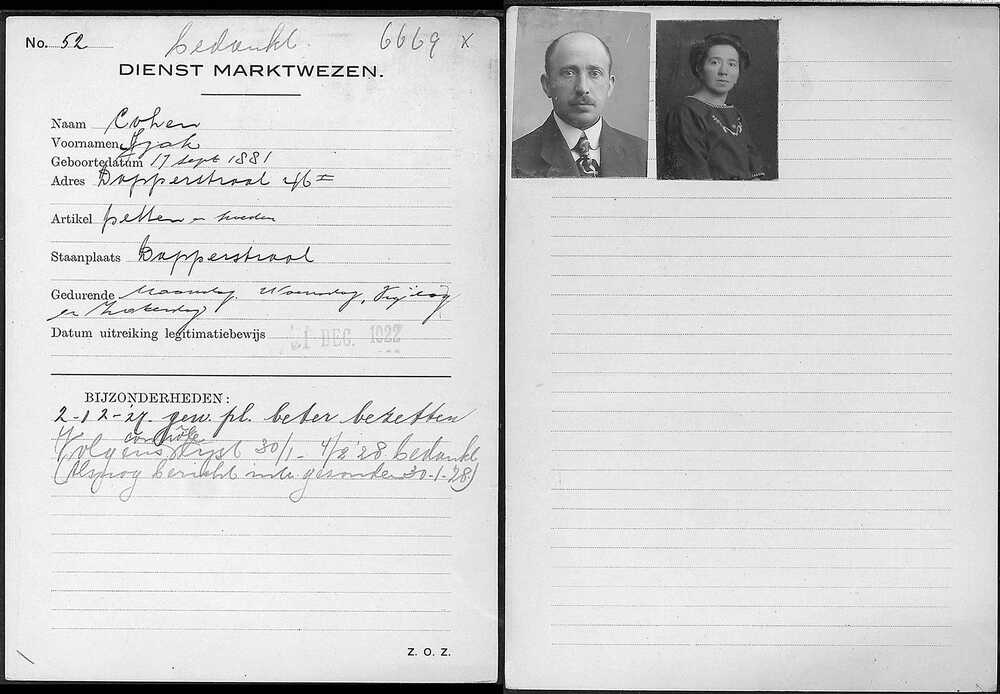 No. 52 bedankt. 6669 x
DIENST MARKTWEZEN.
Naam Cohen
Voornamen Izak
Geboortedatum 17 Sept 1881
Adres Dapperstraat 46 II
Artikel petten en hoeden
Staanplaats Dapperstraat
Gedurende Maandag, Woensdag, Vrijdag
en Zaterdag
Datum uitreiking legitimatiebewijs 21 DEC. 1922
BIJZONDERHEDEN:
2-12-'27. gew. pl. beter bezetten
controle
Volgens lijst 30/1 - 4/2 '28 bedankt
(Alsnog bericht gezonden 30-1-'28)
Z. O. Z.